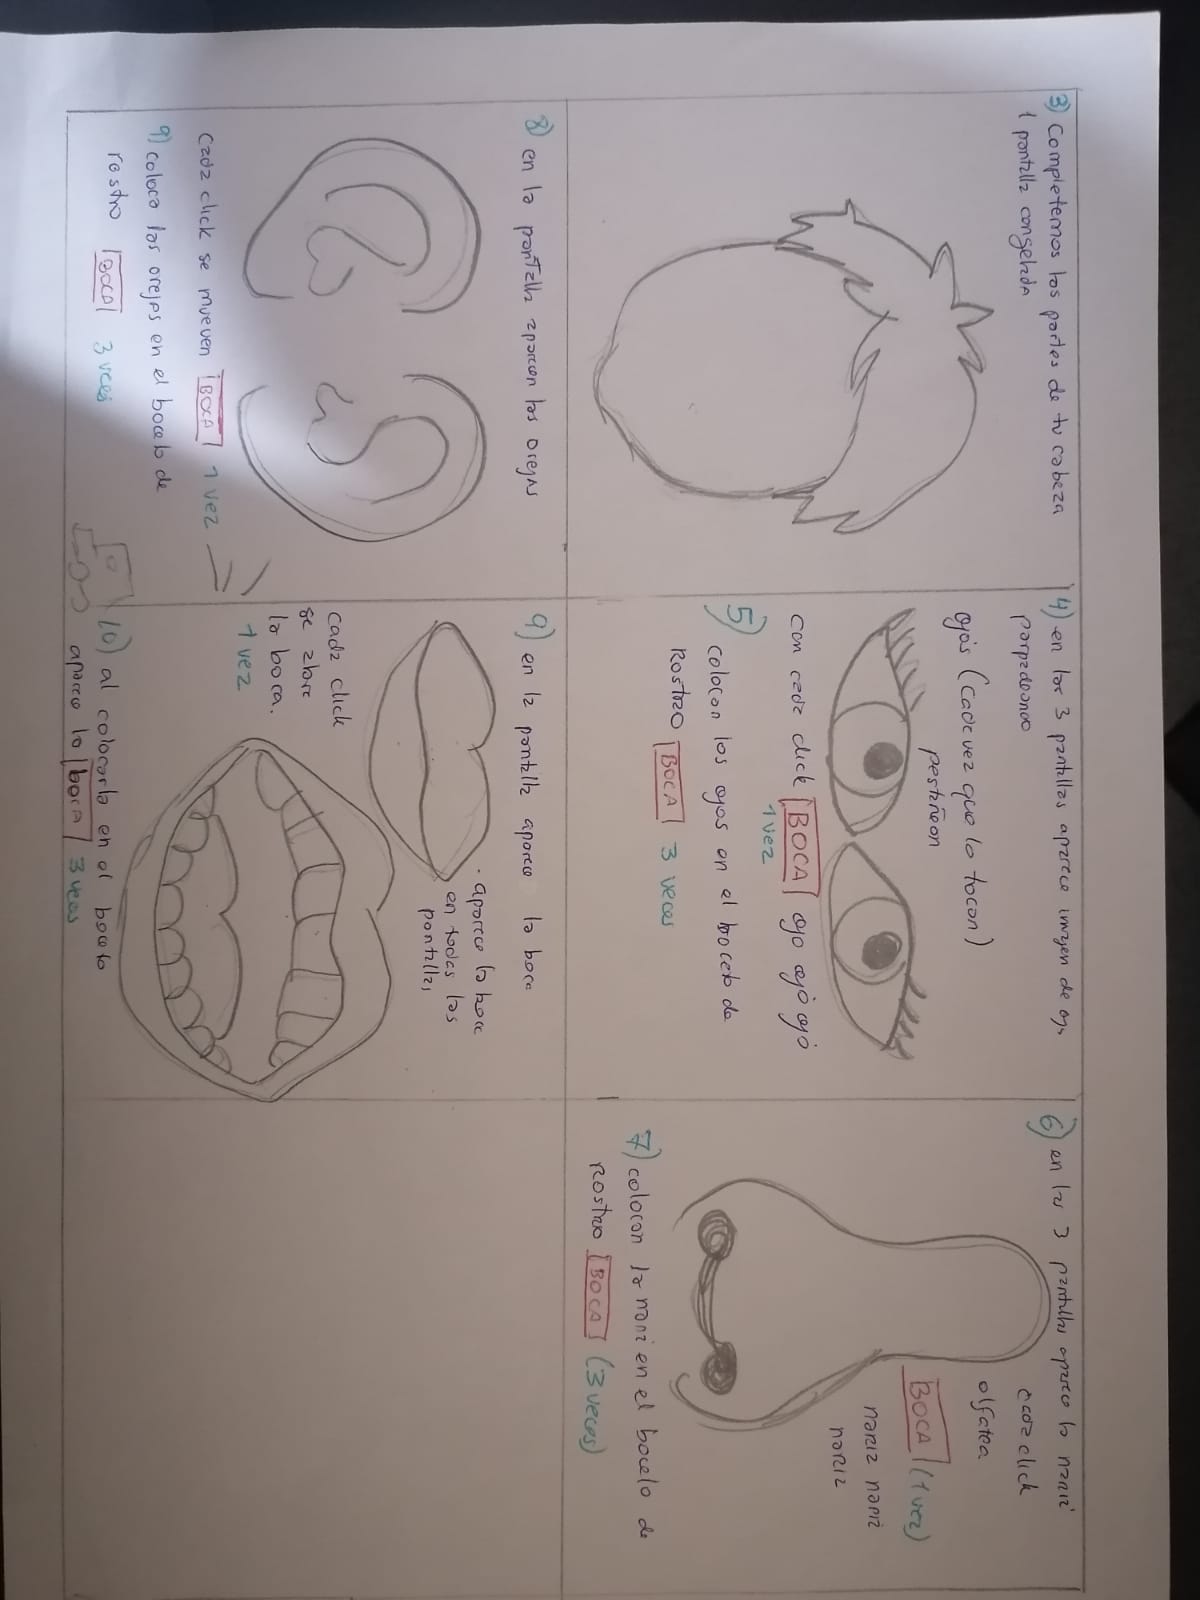 3) Completemos las partes de tu cabeza
1 pantalla congelada
4) en las 3 pantallas aparece imagen de ojs
parpadeando
ojos (cade vez que lo tocan)
pestañean
con cada click BOCA ojo ojo ojo
1 vez
5) colocan los ojos en el boceto de
Rostro BOCA 3 veces
6) en las 3 pantallas aparece la nariz
cada click
olfatea
BOCA (1 vez)
nariz nariz
nariz
7) colocan la nariz en el boceto de
Rostro BOCA (3 veces)
8) en la pantalla aparecen las orejas
cada click se mueven BOCA 1 vez
9) coloca las orejas en el boceto de
rostro BOCA 3 vces
9) en la pantalla aparece la boca
. aparece la boca
en todas las
pantallas
cada click
se abre
la boca.
1 vez
10) al colocarla en el boceto
aparece la boca 3 veces